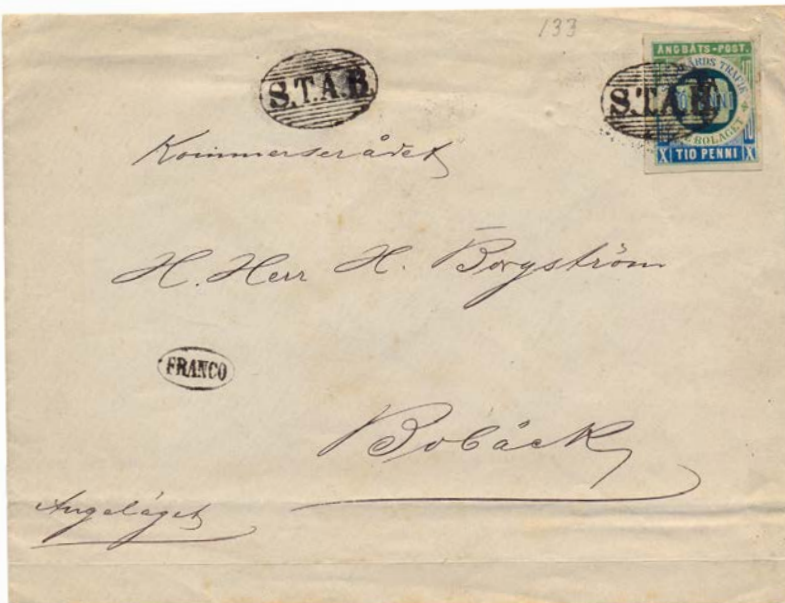 133
S.T.A.B
S.T.A.B
ÅNGBÅTS-POST.
GÅRDS TRAFIK
BOLAGET
X TIO PENNI X
Kommerserådet
H. Herr H. Borgström
FRANCO
Bobäck
Angeläget